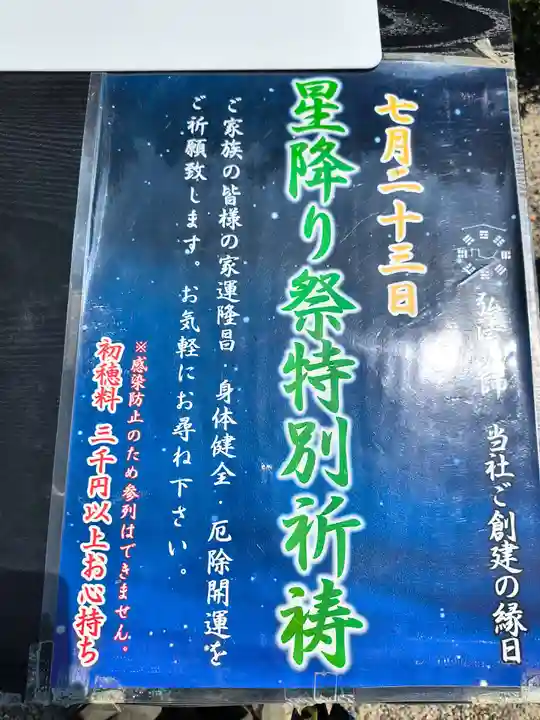 弘法大師 当社ご創建の縁日
七月二十三日
星降り祭特別祈祷
ご家族の皆様の家運隆昌・身体健全・厄除開運を
ご祈願致します。お気軽にお尋ね下さい。
※感染防止のため参列はできません。
初穂料 三千円以上お心持ち